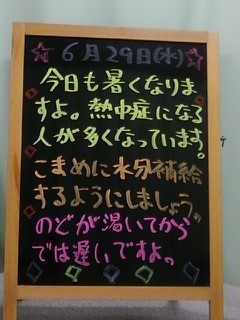 6月29日(水)
今日も暑くなりま
すよ。熱中症になる
人が多くなっています。
こまめに水分補給
するようにしましょう。
のどが渇いてから
では遅いですよ。